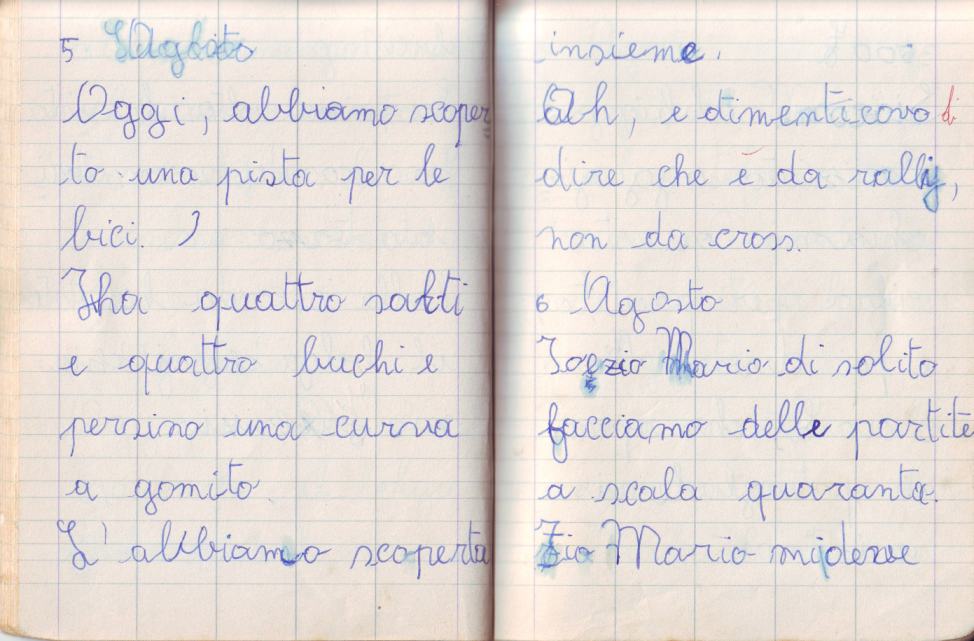 5 Agosto
Oggi, abbiamo scoper
to una pista per le
bici.
Iha quattro salti
e quattro buchi e
persino una curva
a gomito.
L'abbiamo scoperta
insieme.
Ah, e dimenticavo di
dire che è da rally,
non da cross.
6 Agosto
Io e zio Mario di solito
facciamo delle partite
a scala quaranta.
Zio Mario mi